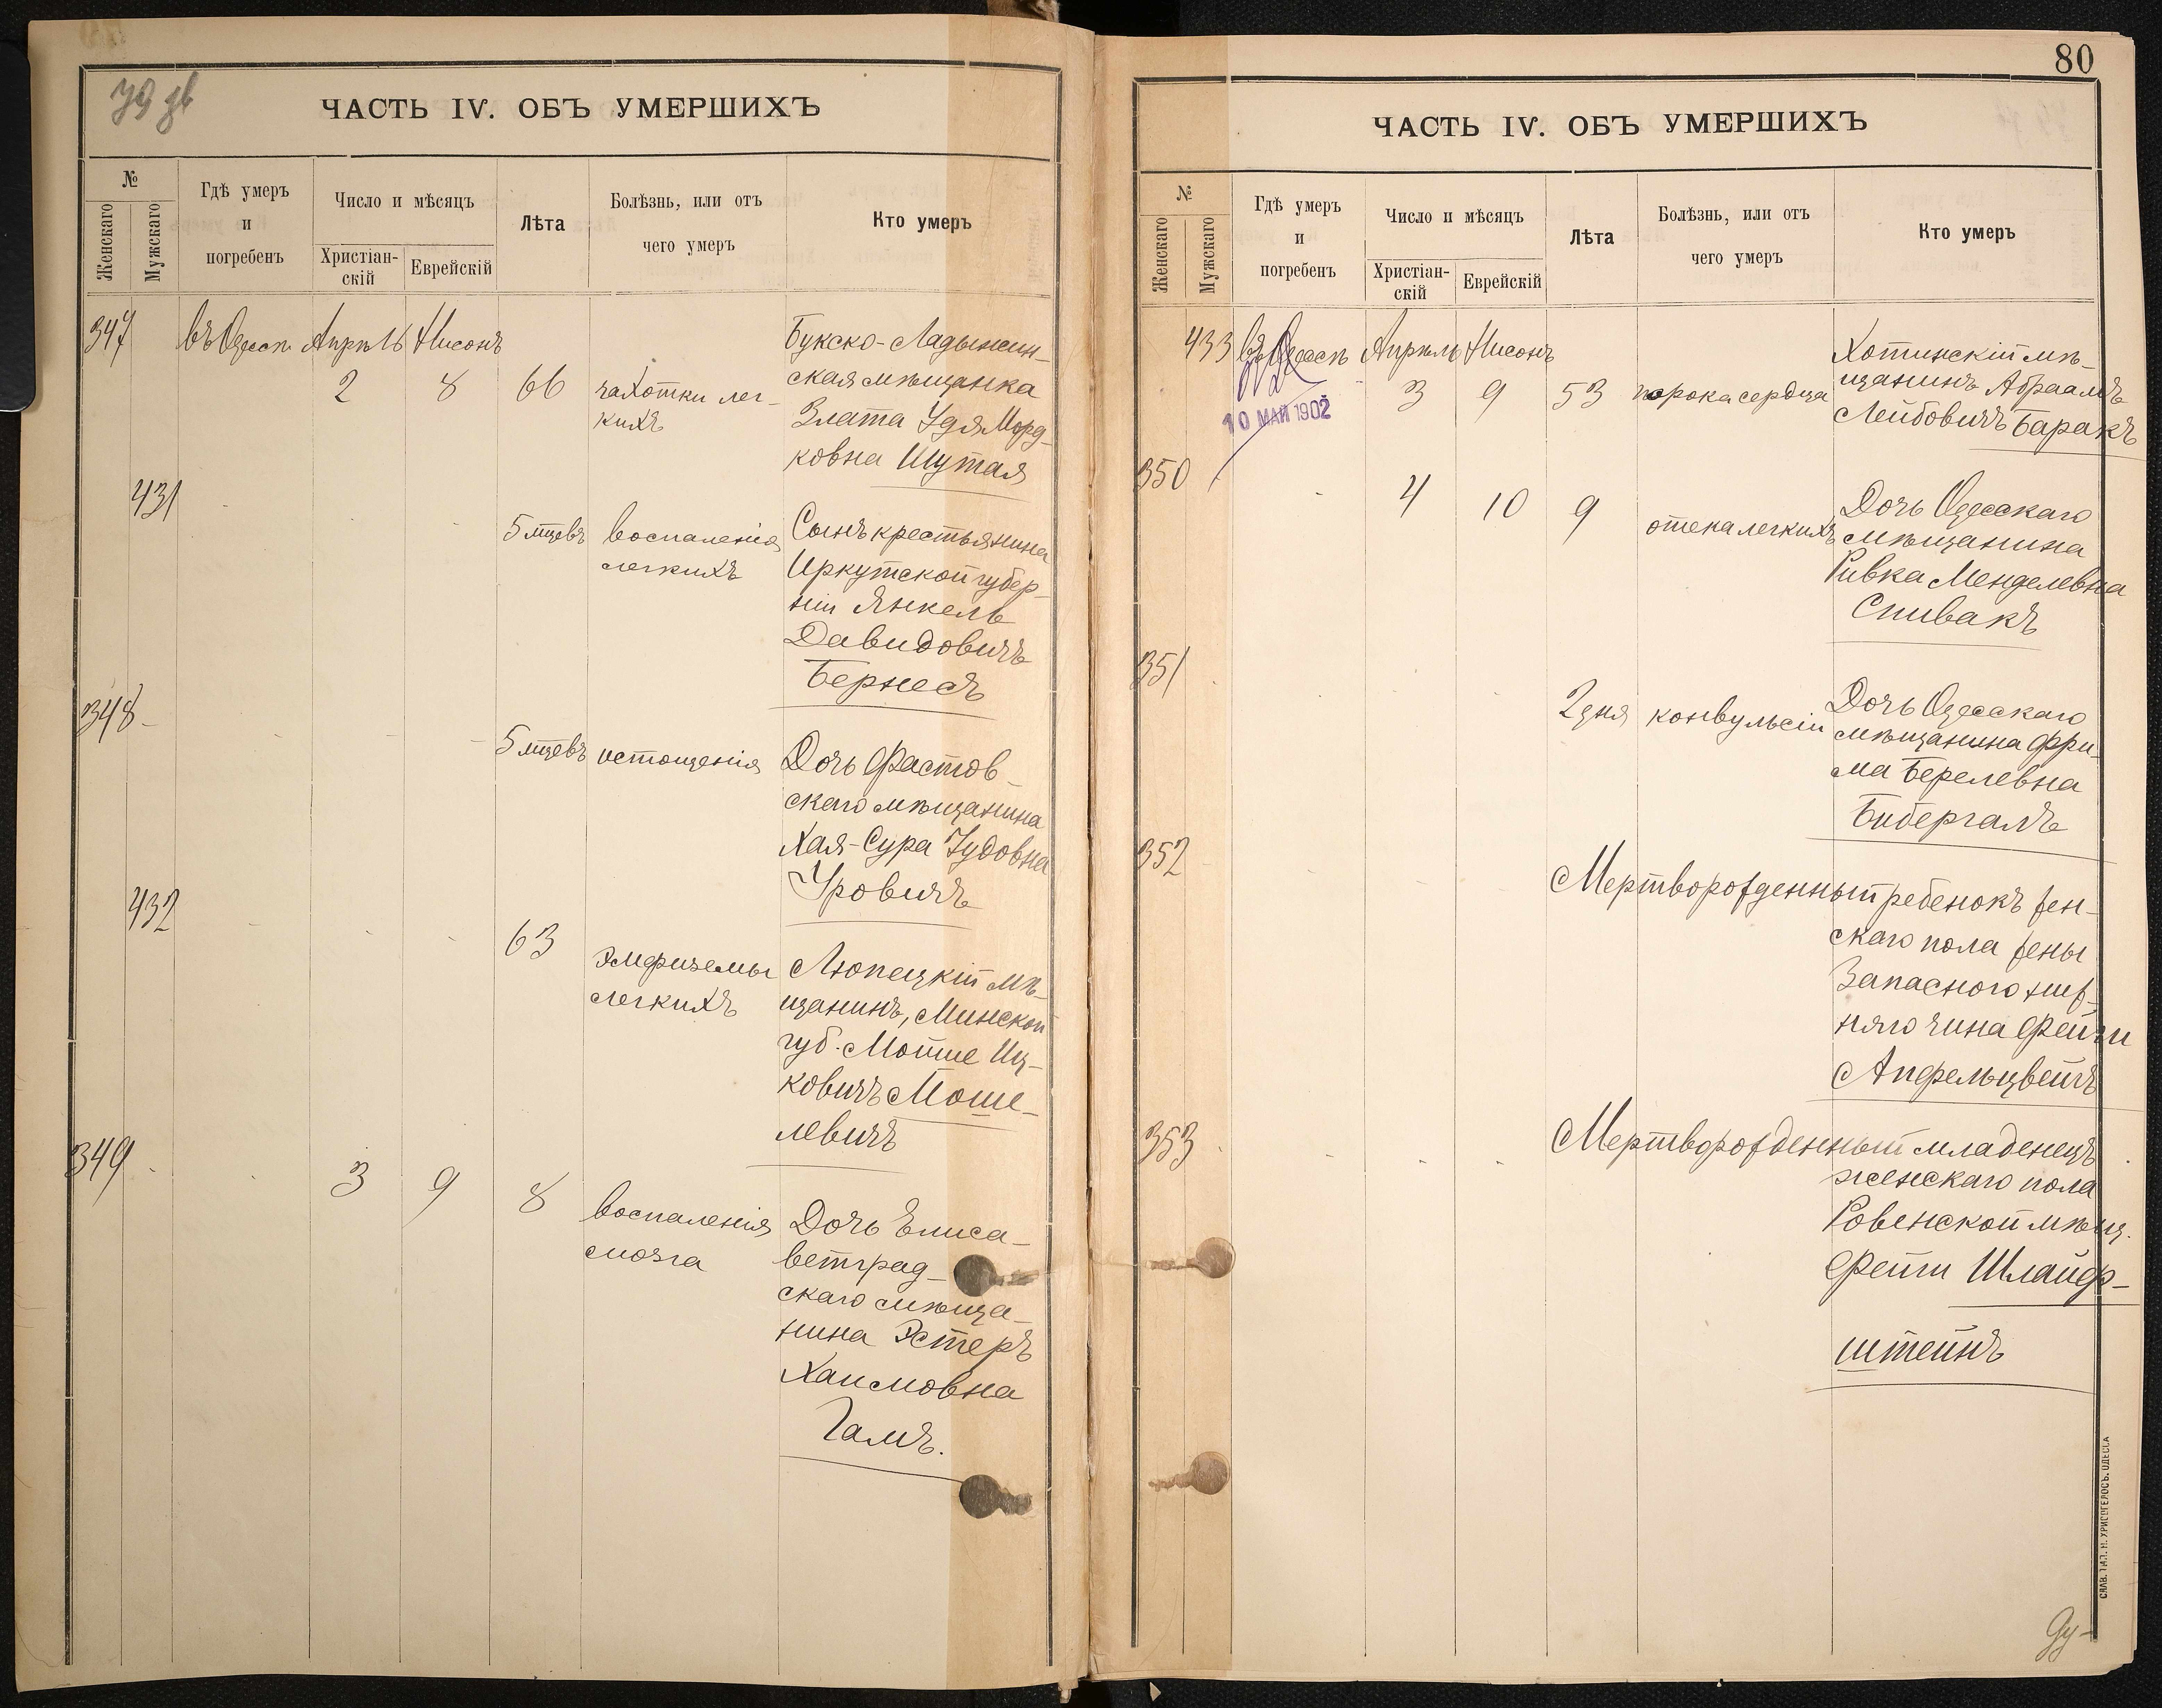 ЧАСТЬ IV. ОБЪ УМЕРШИХЪ
№
Женскаго
Мужскаго
Гдѣ умеръ
и
погребенъ
Число и мѣсяцъ
Христіан-
скій
Еврейскій
Лѣта
Болѣзнь, или отъ
чего умеръ
Кто умеръ
347 въ Одессѣ Апрѣль Нисонъ
2 8 66 чахотки лег-
кихъ
Букско-Ладыжин-
ская мѣщанка
Злата Удя Морд-
ковна Шутая
431
5 мцевъ воспаленія
легкихъ
Сынъ крестьянина
Иркутской губер-
ніи Янкель
Давидовичъ
Бернесъ
348
5 мцевъ истощенія
Дочь Фастов-
скаго мѣщанина
Хая-Сура Іудовна
Уровичъ
432
63 эмфиземы
легкихъ
Люпецкій мѣ-
щанинъ, Минской
губ. Мотше Иц-
ковичъ Моше-
левичъ
349
3 9 8 воспаленія
мозга
Дочь Елиса-
ветград-
скаго мѣща-
нина Эстеръ
Хаимовна
Гамъ.
80
ЧАСТЬ IV. ОБЪ УМЕРШИХЪ
№
Женскаго
Мужскаго
Гдѣ умеръ
и
погребенъ
Число и мѣсяцъ
Христіан-
скій
Еврейскій
Лѣта
Болѣзнь, или отъ
чего умеръ
Кто умеръ
433 въ Одессѣ Апрѣль Нисонъ
3 9 53 порока сердца
10 МАЙ 1902
Хотинскій мѣ-
щанинъ Абраамъ
Лейбовичъ Баракъ
350
4 10 9 отека легкихъ
Дочь Одесскаго
мѣщанина
Ривка Менделевна
Спивакъ
351
2 дня конвульсіи
Дочь Одесскаго
мѣщанина Фри-
ма Берелевна
Бибергалъ
352
Мертворожденный ребенокъ жен-
скаго пола жены
Запасного ниж-
няго чина Фейги
Апфельцвейгъ
353
Мертворожденный младенецъ
женскаго пола
Ровенской мѣщ.
Фейги Шлайф-
штейнъ
СЛАВ. ТИП. Н. ХРИСОГЕЛОСЪ. ОДЕССА